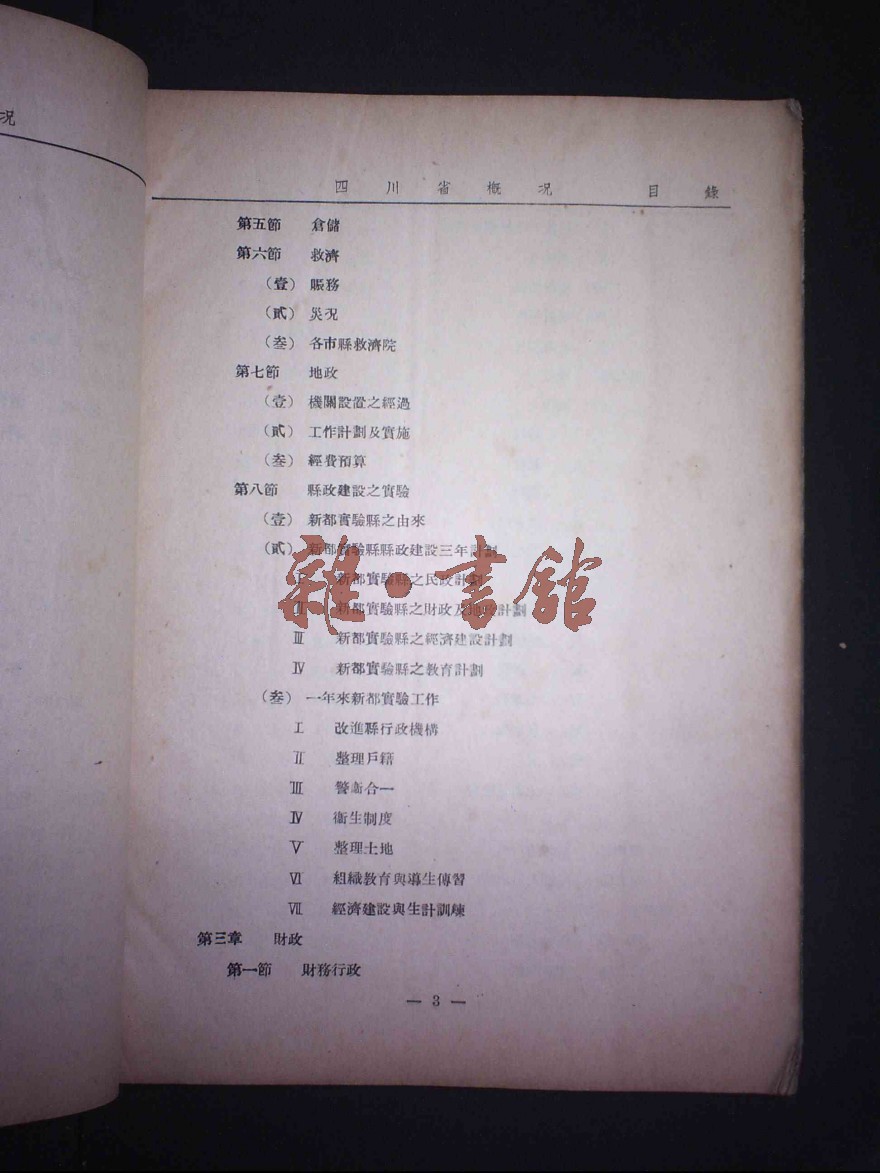 况
四川省概况 目錄
第五節 倉儲
第六節 救濟
(壹) 賑務
(貳) 災况
(叁) 各市縣救濟院
第七節 地政
(壹) 機關設置之經過
(貳) 工作計劃及實施
(叁) 經費預算
第八節 縣政建設之實驗
(壹) 新都實驗縣之由來
(貳) 新都實驗縣縣政建設三年計劃
I 新都實驗縣之民政計劃
II 新都實驗縣之財政及地政計劃
III 新都實驗縣之經濟建設計劃
IV 新都實驗縣之教育計劃
(叁) 一年來新都實驗工作
I 改進縣行政機構
II 整理戶籍
III 警衛合一
IV 衛生制度
V 整理土地
VI 組織教育與導生傳習
VII 經濟建設與生計訓練
第三章 財政
第一節 財務行政
— 3 —
雜·書館